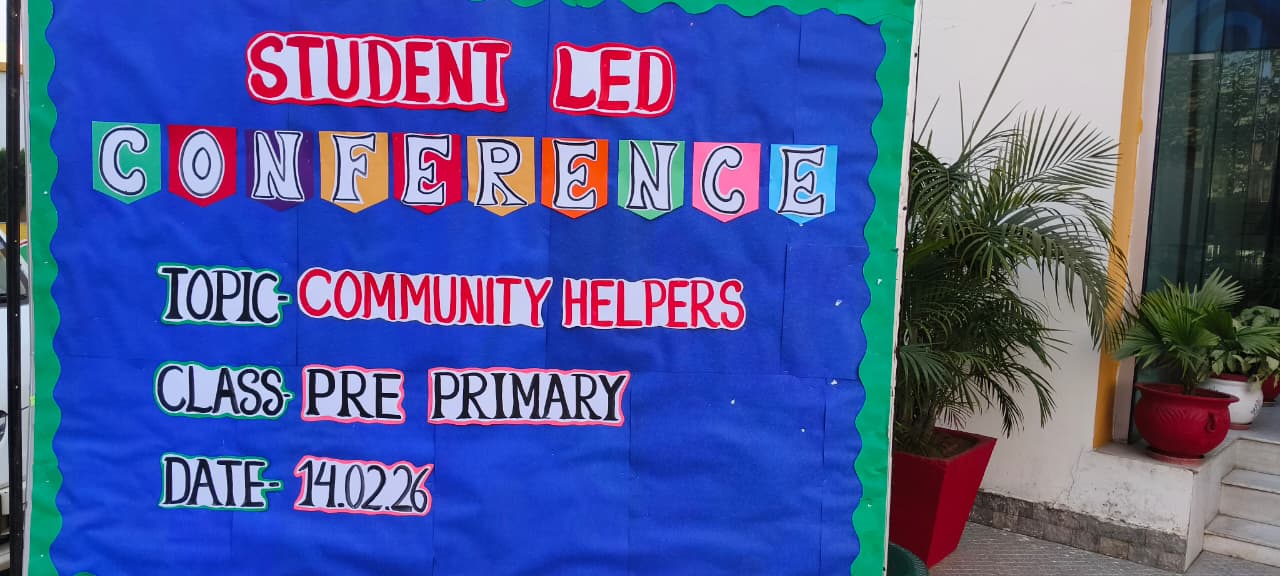 STUDENT LED
CONFERENCE
TOPIC- COMMUNITY HELPERS
CLASS- PRE PRIMARY
DATE- 14.02.26